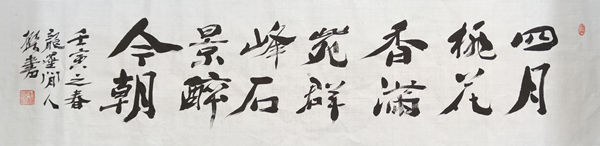 四月
桃花
香满
苑群
峰石
景醉
今朝
壬寅之春
龍墨閒人
書